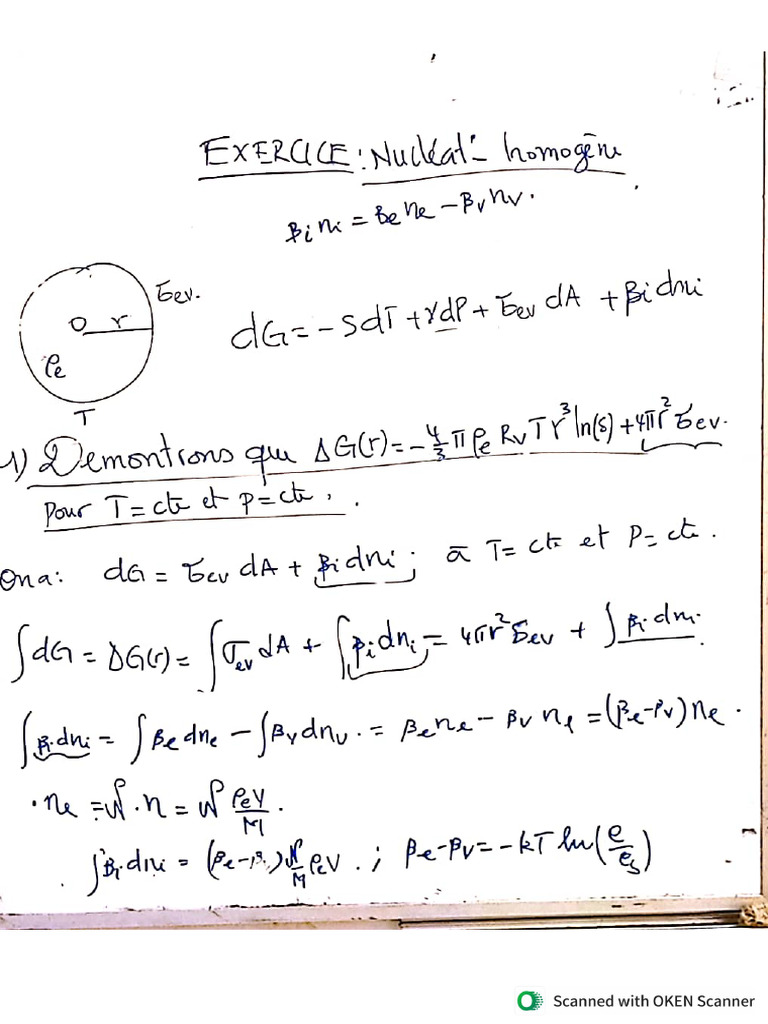 EXERCICE : Nucléat° homogène
βini = βene − βvnv.
σev.
O r
ρe
T
dG = −SdT + VdP + σev dA + βi dni
1) Démontrons que ΔG(r) = −4/3 π ρe Rv T r³ ln(s) + 4πr² σev.
pour T = cte et p = cte.
On a : dG = σev dA + βi dni ; à T = cte et P = cte.
∫dG = ΔG(r) = ∫σev dA + ∫βi dni = 4πr² σev + ∫βi dni.
∫βi dni = ∫βe dne − ∫βv dnv = βe ne − βv ne = (βe − βv) ne.
• ne = 𝒩 . n = 𝒩 ρeV/M.
∫βi dni = (βe − βv) 𝒩/M ρeV. ; βe − βv = −kT ln(e/es)
Scanned with OKEN Scanner